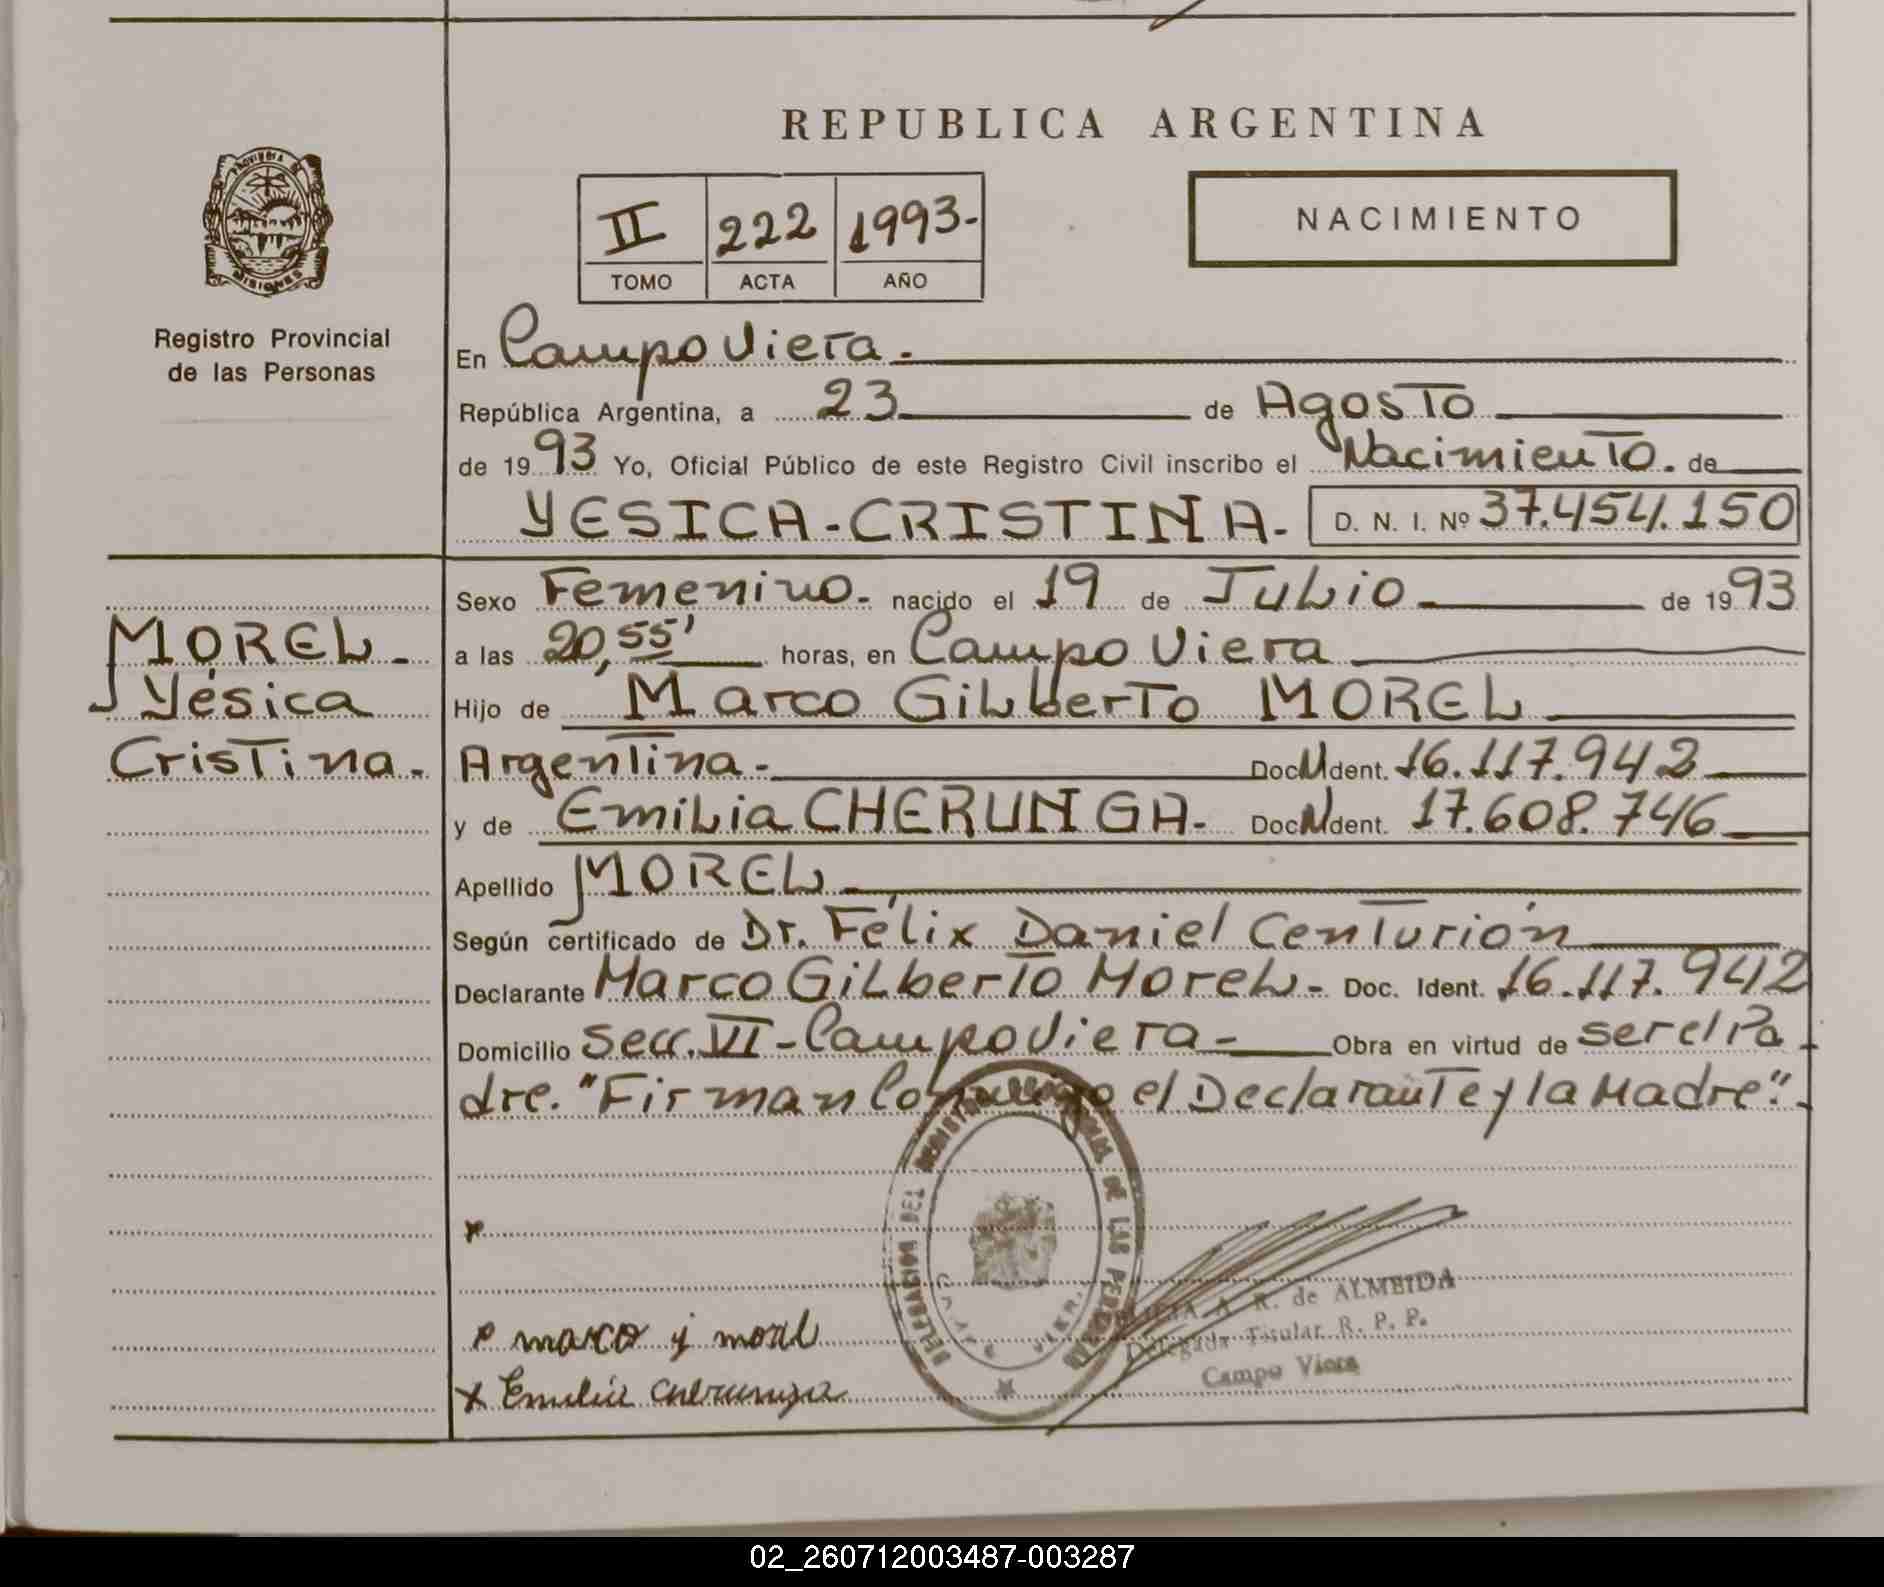 REPUBLICA ARGENTINA
PROVINCIA DE
MISIONES
Registro Provincial
de las Personas
II 222 1993-
TOMO ACTA AÑO
NACIMIENTO
En Campo Viera.
República Argentina, a 23 de Agosto
de 1993 Yo, Oficial Público de este Registro Civil inscribo el Nacimiento. de
YESICA-CRISTINA- D. N. I. Nº 37.454.150
MOREL-
Yésica
Cristina.
Sexo Femenino. nacido el 19 de Julio de 1993
a las 20,55' horas, en Campo Viera
Hijo de Marco Gilberto MOREL
Argentina. Doc. Ident. 16.117.942
y de Emilia CHERUNGA. Doc. Ident. 17.608.746
Apellido MOREL
Según certificado de Dr. Félix Daniel Centurión
Declarante Marco Gilberto Morel. Doc. Ident. 16.117.942
Domicilio Secc. VI - Campo Viera - Obra en virtud de ser el Pa
dre. "Firman Conmigo el Declarante y la Madre".
DELEGACION DEL REGISTRO DE LAS PERSONAS
x
marco j morel
x Emilia cherunga
A. R. de ALMEIDA
Delegada Titular R. P. P.
Campo Viera
02_260712003487-003287